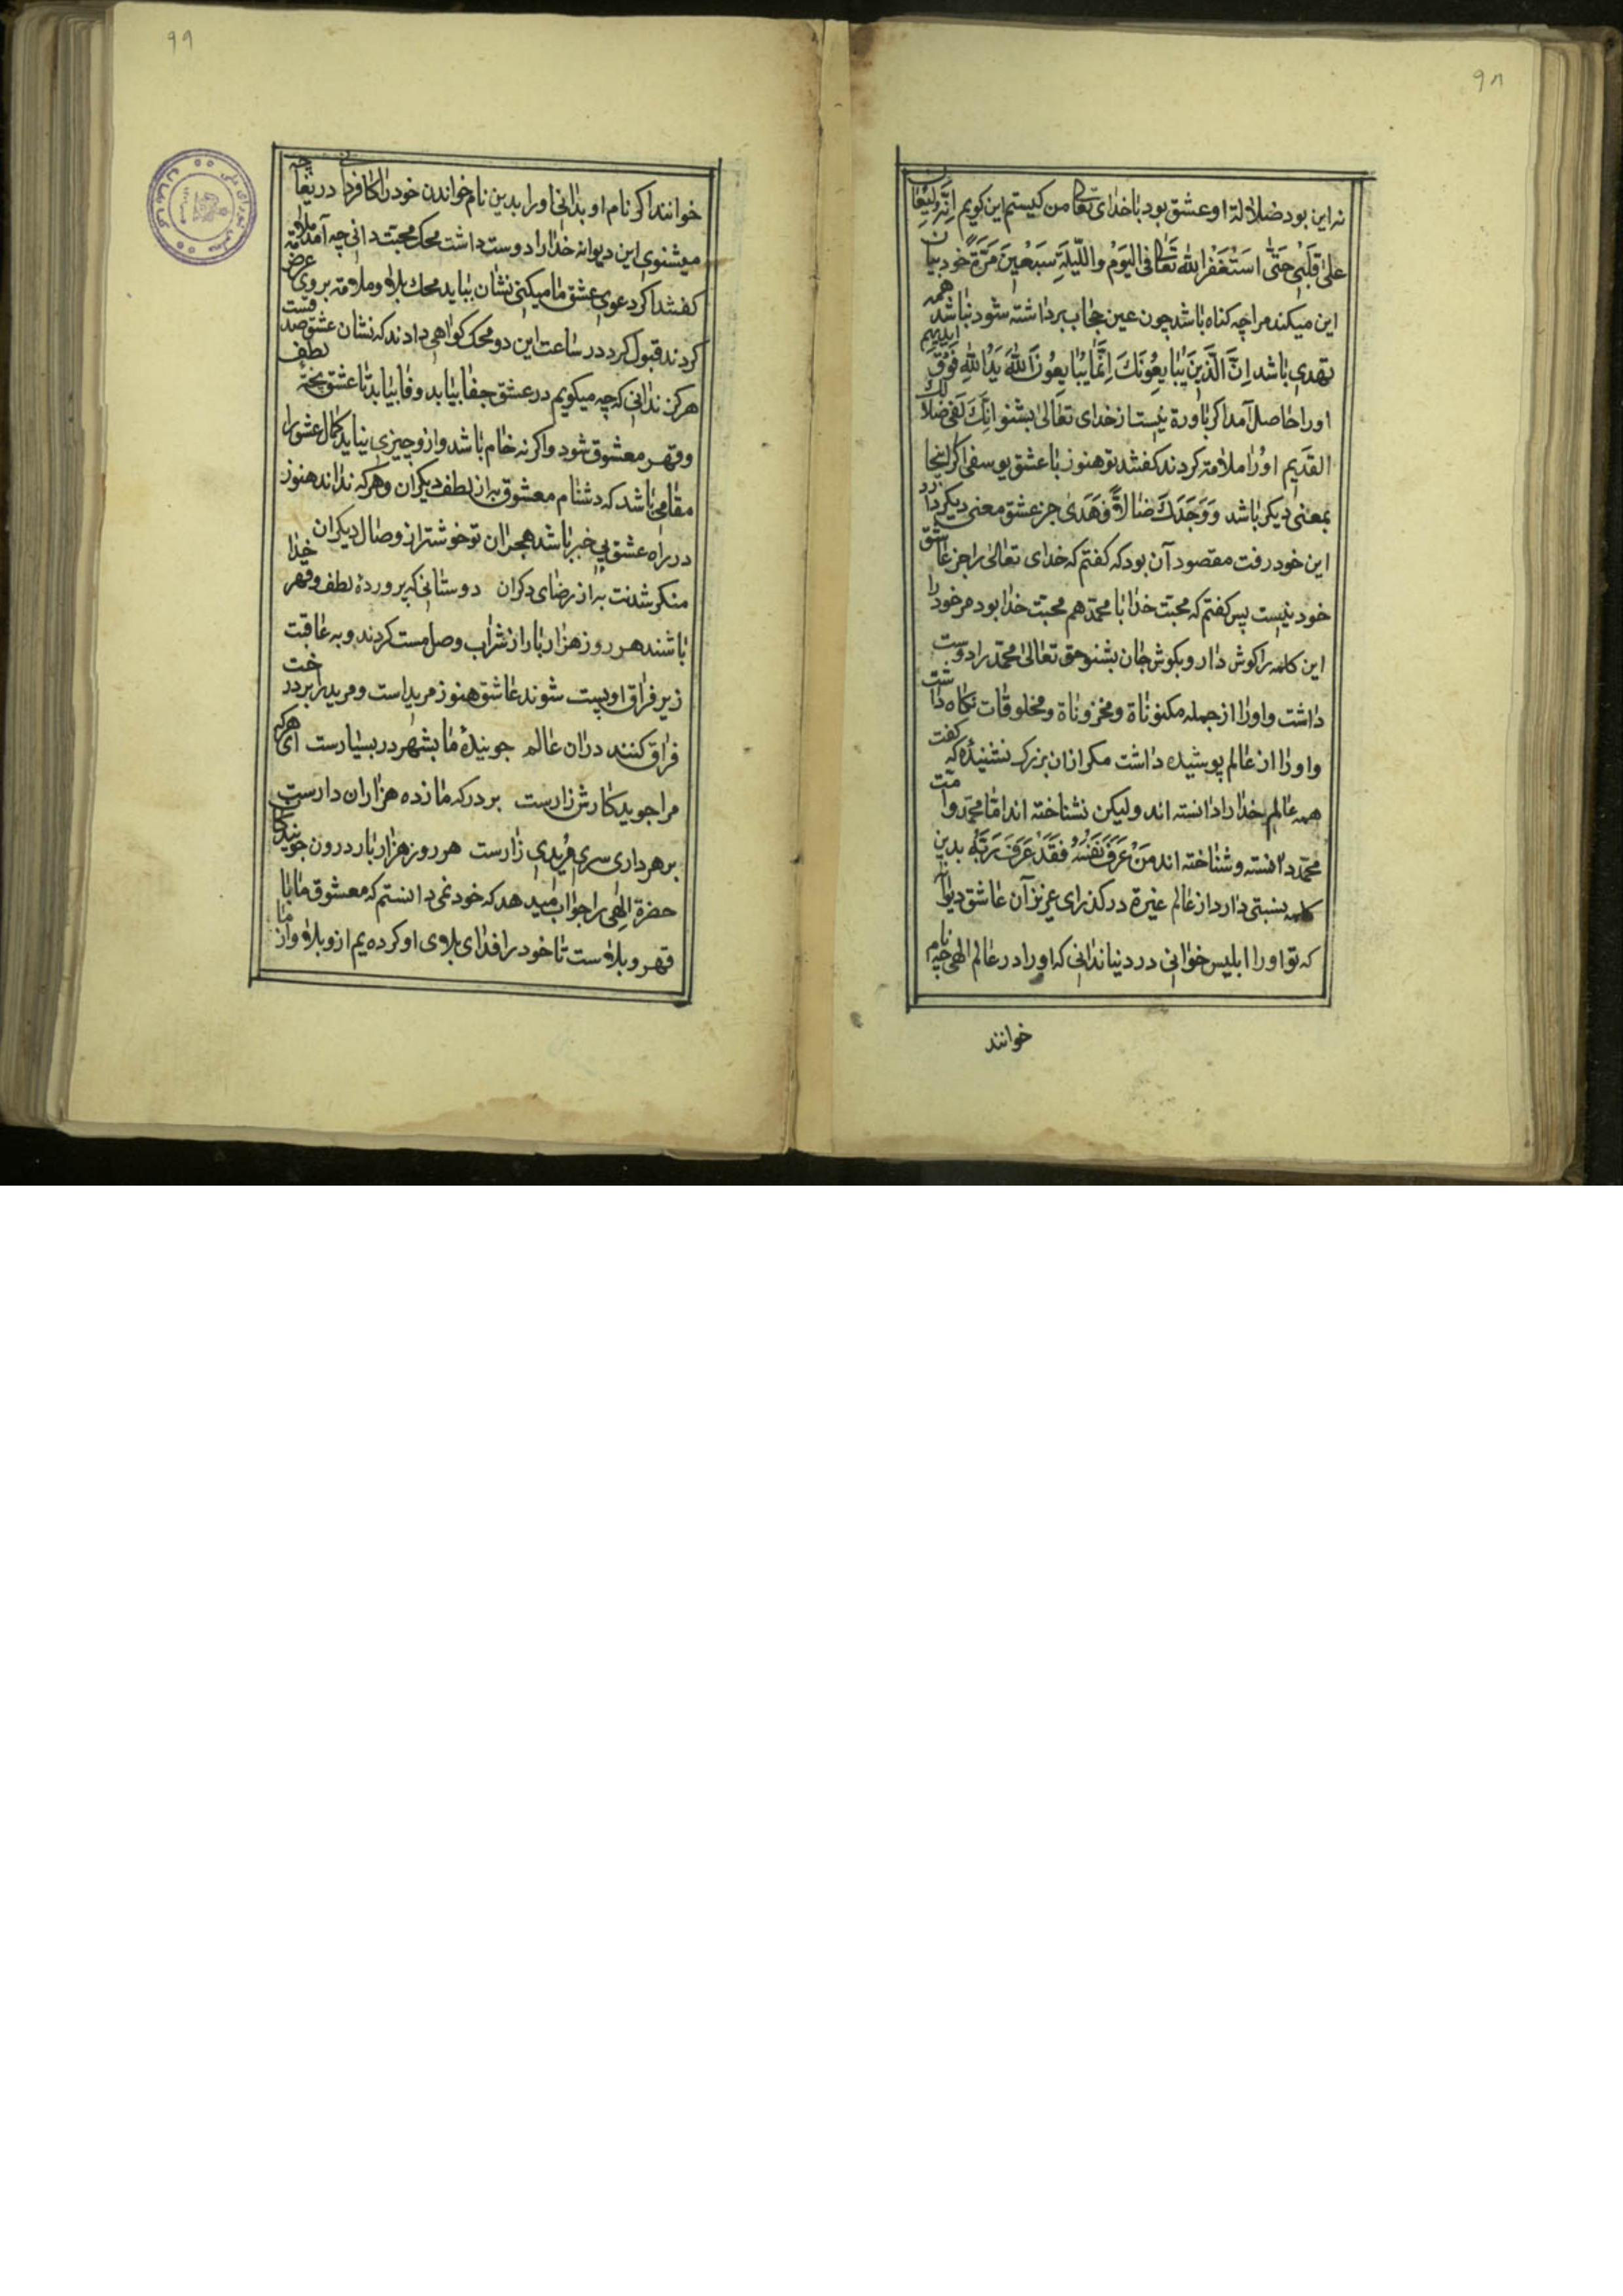 ۹۸
نه این بود ضلالة او عشق بود با خدای تعا من کیستم این کویم انه لیغان
علی قلبی حتی استغفر الله تعا فی الیوم واللیلة سبعین مرة خود بیان
این میکند مرا چه کناه باشد چون عین حجاب برداشته شود نباشد همه
یهدی باشد ان الذین یبایعونك انما یبایعون الله ید الله فوق ایدیهم
اورا حاصل آمد اکر باورة نیست از خدای تعالی بشنو انك لفی ضلالك
القدیم اورا ملامته کردند کفتند تو هنوز با عشق یوسفی اکر اینجا
بمعنی دیکر باشد ووجدك ضالا فهدی جز عشق معنی دیکر دارد
این خود رفت مقصود آن بود که کفتم که خدای تعالی را جز عاشق
خود نیست پس کفتم که محبت خدا با محمد هم محبت خدا بود مر خود را
این کلمه را کوش دار و بکوش جان بشنو حق تعالی محمد را دوست
داشت واورا از جمله مکنوناة ومخزوناة ومخلوقات نکاه داشت
واورا از عالم پوشیده داشت مکر ازان بزرك نشنیدهٔ که کفت
همه عالم خدا را دانسته اند ولیکن نشناخته اند اما محمد وامت
محمد دانسته وشناخته اند من عرف نفسه فقد عرف ربه بدین
کلمه نسبتی دارد از عالم غیرة درکذر ای عزیز آن عاشق دیوانه
که تو اورا ابلیس خوانی در دنیا ندانی که اورا در عالم الهی بچه نام
خوانند
۹۹
خوانند اکر نام او بدانی اورا بدین نام خواندن خود را کافر دانی دریغا چه
میشنوی این دیوانه خدا را دوست داشت محك محبت دانی چه آمد ملامة
کفتند اکر دعوی عشق ما میکنی نشان بباید محك بلاؤ وملامته بر وی عرض
کردند قبول کرد در ساعت این دو محك کواهی دادند که نشان عشق صدقست
هرکز ندانی که چه میکویم در عشق جفا بیابد وفا بیابد تا عاشق پختهٔ لطف
وقهر معشوق شود واکر نه خام باشد وازو چیزی نیاید کمال عشق را
مقامی باشد که دشنام معشوق به از لطف دیکران وهرکه نداند هنوز
در راه عشق بی خبر باشد هجران تو خوشتر از وصال دیکران
منکر شدنت به از رضای دکران دوستانی که پروردهٔ لطف وقهر خدا
باشند هر روز هزار بار از شراب وصل مست کردند وبه عاقبت
زیر فراق او پست شوند عاشق هنوز مرید است ومرید را بر درخت
فراق کنند دران عالم جویندهٔ ما بشهر در بسیارست ای هرکه
مرا جوید کارش زارست بر درکه ما زده هزاران دارست
بر هر داری سری مریدی زارست هر روز هزار بار درون جویندکان
حضرة الهی را جواب میدهد که خود نمی دانستم که معشوق ما با
قهر وبلاؤست تا خود را فدای بلاؤی او کرده یم ازو بلاؤ واز ما